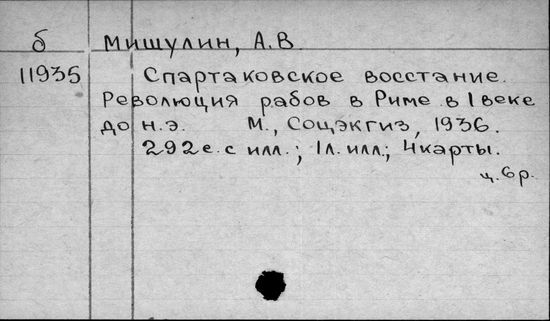 б Мишулин, А.В.
11935 Спартаковское восстание.
Революция рабов в Риме в I веке
до н.э. М., Соцэкгиз, 1936.
292с. с илл.; 1л. илл.; 4 карты.
ц. 6 р.